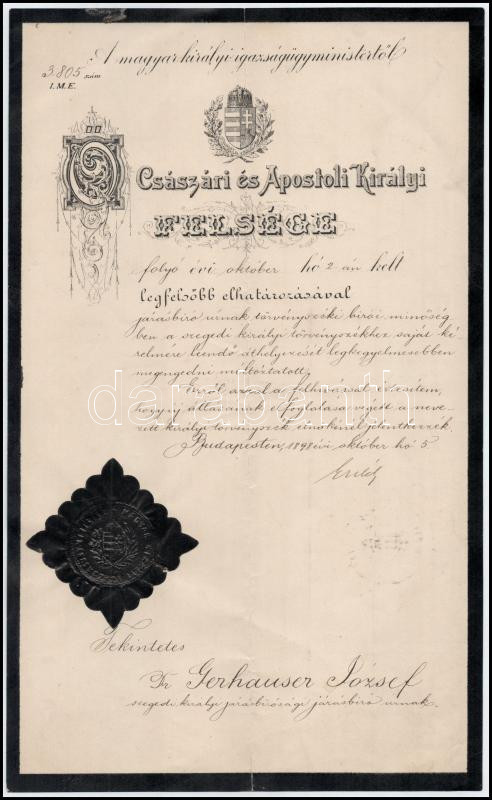 A magyar királyi igazságügyministertől
3.805 szám
I.M.E.
Ő Császári és Apostoli Királyi
FELSÉGE
folyó évi október hó 2 án kelt
legfelsőbb elhatározásával
járásbíró urnak törvényszéki birói minőség
ben a szegedi királyi törvényszékhez saját ké
relmére leendő áthelyezését legkegyelmesebben
megengedni méltóztatott.
Erről azzal a felhivással értesítem,
hogy uj állásának elfoglalása végett a neve
zett királyi törvényszék elnökénél jelentkezzék.
Budapesten, 1898 évi október hó 5
darabanth
Tekintetes
Gerhauser József
szegedi királyi járásbirósági járásbiró urnak.